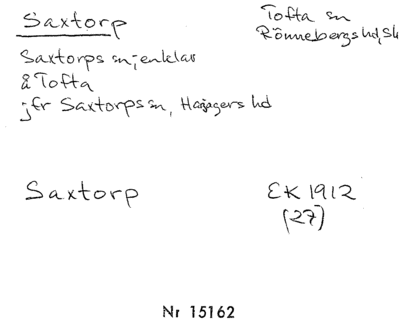 Saxtorp
Tofta sn
Rönnebergs hd, Sk
Saxtorps sn; enklav
å Tofta
jfr Saxtorps sn, Harjagers hd
Saxtorp
EK 1912
(27)
Nr 15162